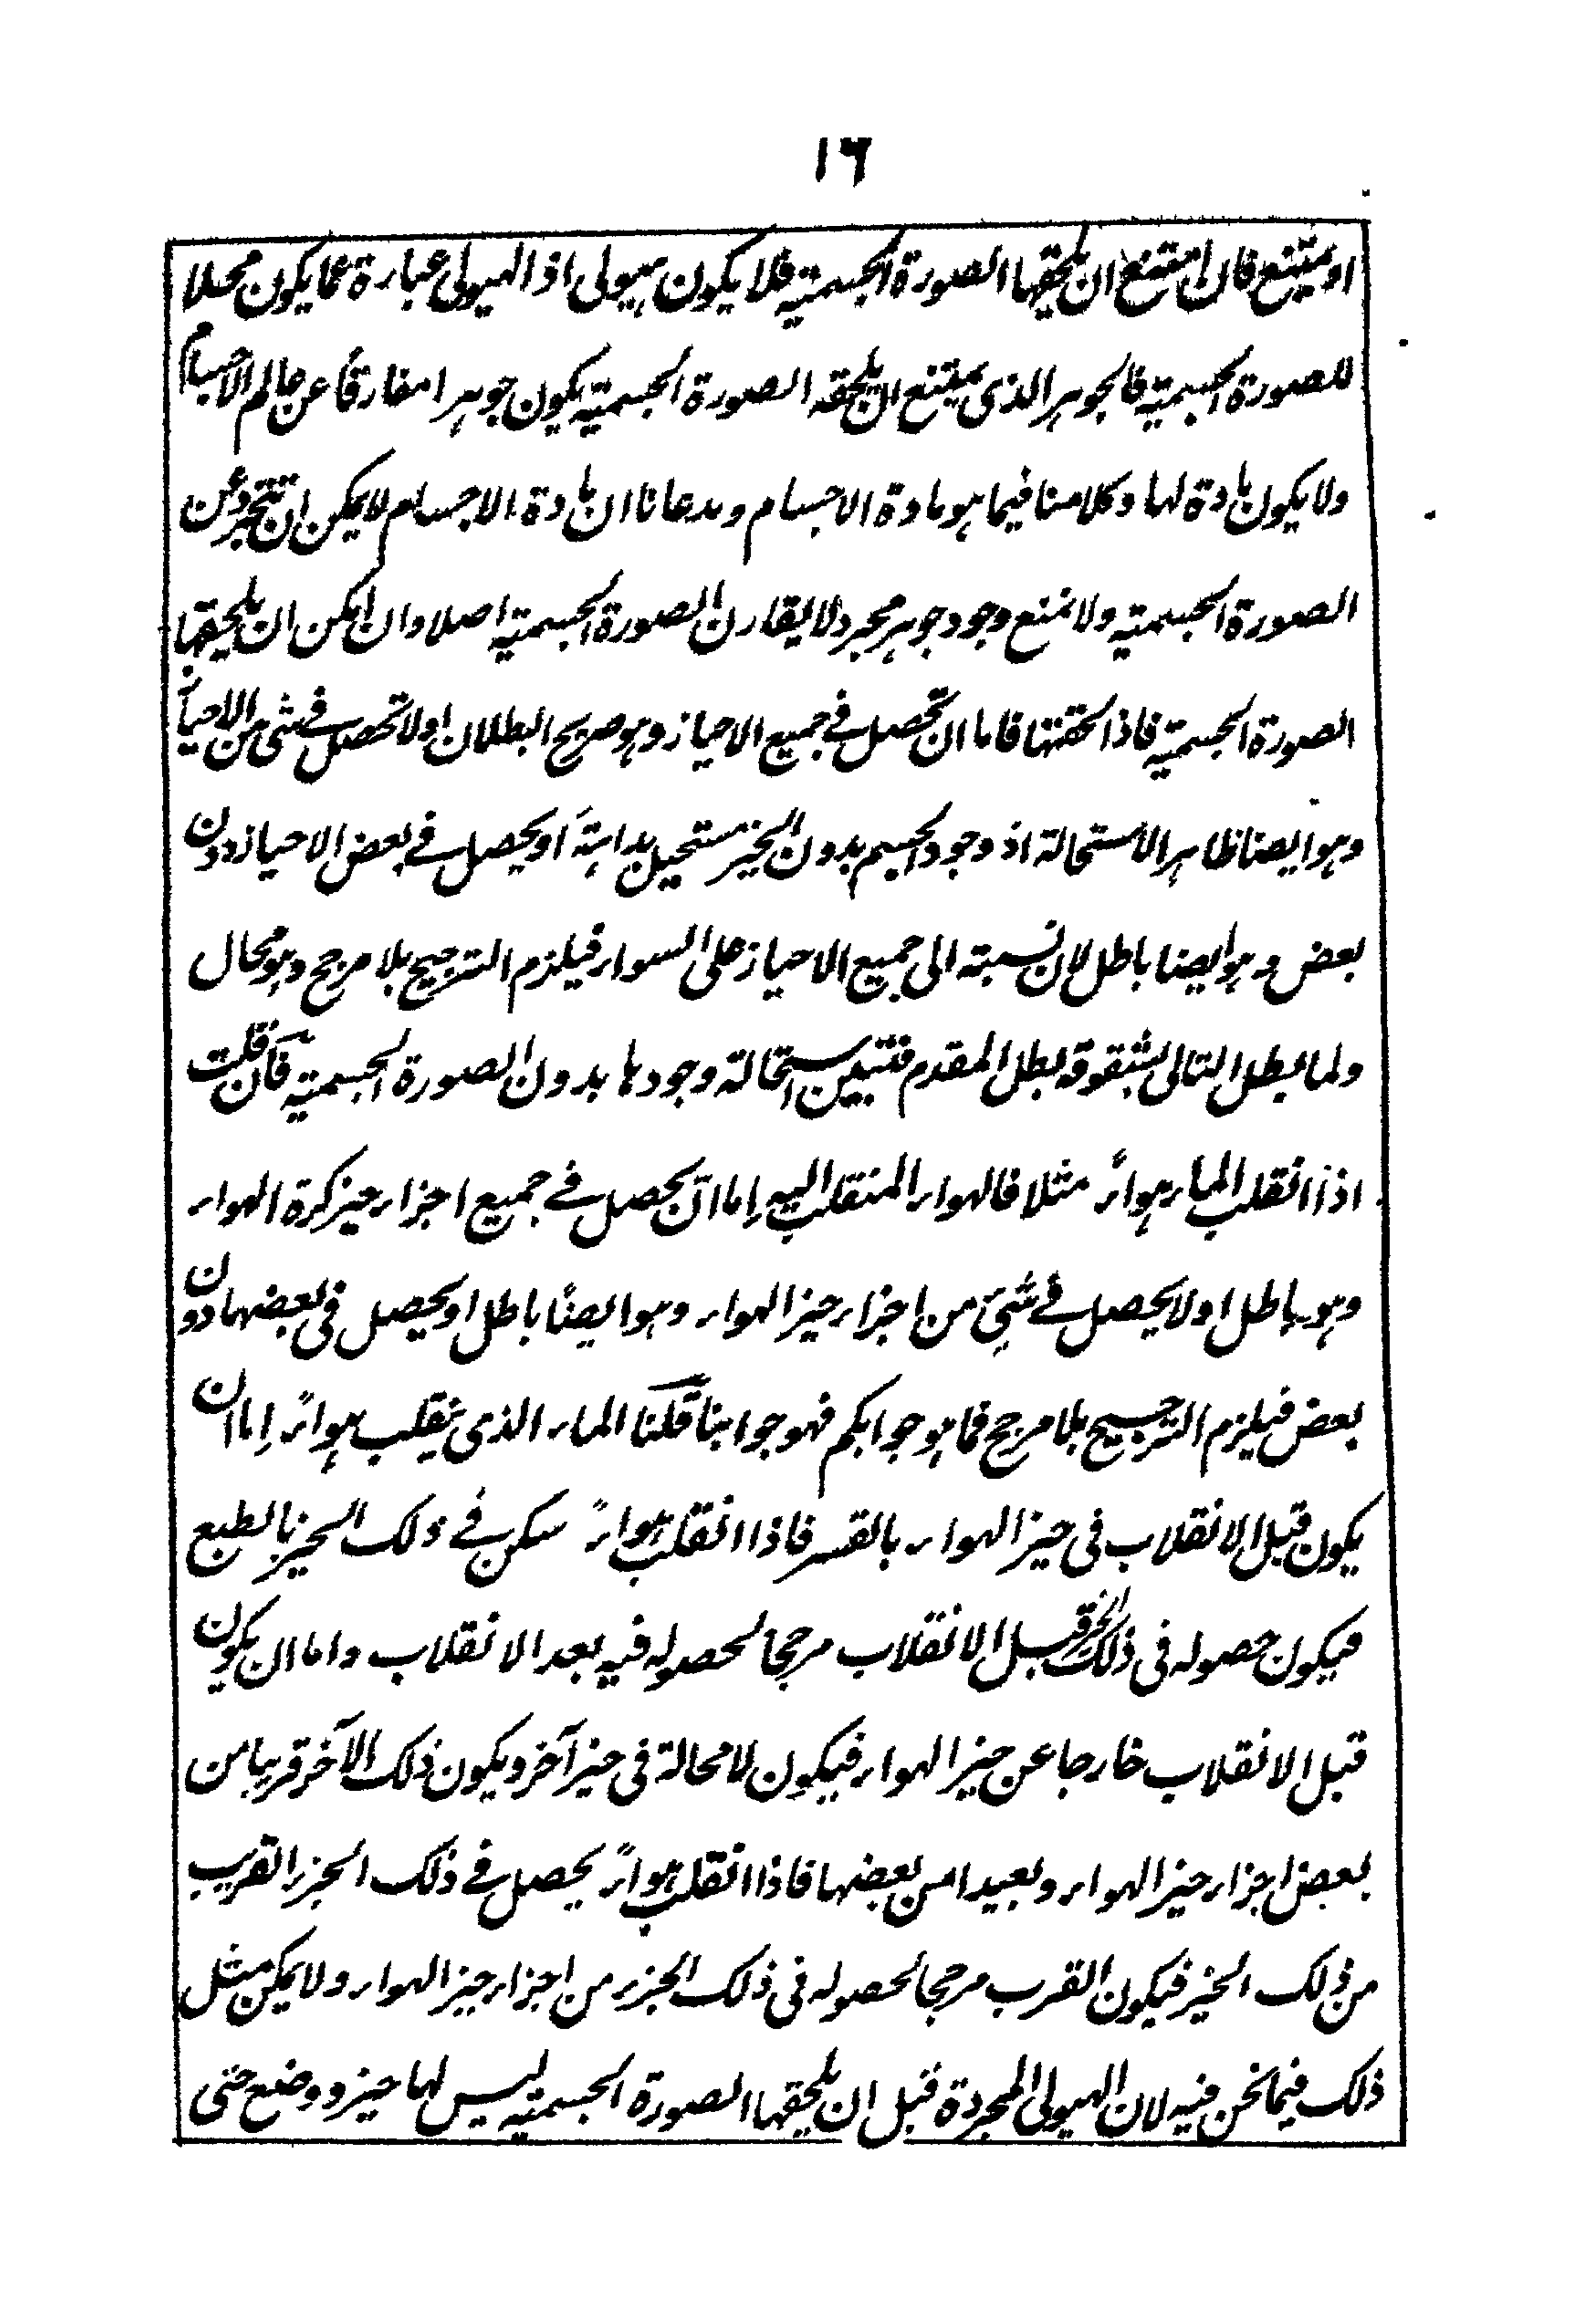 ١٦
او يمتنع فان امتنع ان يلحقها الصورة الجسمية فلا يكون هيولى اذ الهيولى عبارة عما يكون محلا
للصورة الجسمية فالجوهر الذى يمتنع ان يلحقه الصورة الجسمية يكون جوهرا مفارقاً عن عالم الاجسام
ولا يكون مادة لها وكلامنا فيما هو مادة الاجسام ومدعانا ان مادة الاجسام لا يمكن ان تتجرد عن
الصورة الجسمية ولا نمنع وجود جوهر مجرد لا يقارن الصورة الجسمية اصلا وان امكن ان يلحقها
الصورة الجسمية فاذا لحقتها فاما ان تحصل فى جميع الاحياز وهو صريح البطلان او لا تحصل فى شئ من الاحياز
وهو ايضا ظاهر الاستحالة اذ وجود الجسم بدون الحيز مستحيل بداهةً او يحصل فى بعض الاحياز دون
بعض وهو ايضا باطل لان نسبته الى جميع الاحياز على السواء فيلزم الترجيح بلا مرجح وهو محال
ولما بطل التالى بشقوقه بطل المقدم فتبين استحالة وجودها بدون الصورة الجسمية فان قلت
اذا انقلب الماء هواءً مثلا فالهواء المنقلب اليه إما ان يحصل فى جميع اجزاء حيز كرة الهواء
وهو باطل او لا يحصل فى شئ من اجزاء حيز الهواء وهو ايضًا باطل او يحصل فى بعضها دون
بعض فيلزم الترجيح بلا مرجح فما هو جوابكم فهو جوابنا قلنا الماء الذى ينقلب هواءً إما ان
يكون قبل الانقلاب فى حيز الهواء بالقسر فاذا انقلب هواءً سكن فى ذلك الحيز بالطبع
فيكون حصوله فى ذلك الحيز قبل الانقلاب مرجحا لحصوله فيه بعد الانقلاب واما ان يكون
قبل الانقلاب خارجا عن حيز الهواء فيكون لا محالة فى حيز آخر ويكون ذلك الآخر قريبا من
بعض اجزاء حيز الهواء وبعيدا من بعضها فاذا انقلب هواءً يحصل فى ذلك الجزء القريب
من ذلك الحيز فيكون القرب مرجحا لحصوله فى ذلك الجزء من اجزاء حيز الهواء ولا يمكن مثل
ذلك فيما نحن فيه لان الهيولى المجردة قبل ان يلحقها الصورة الجسمية ليس لها حيز ووضع حتى